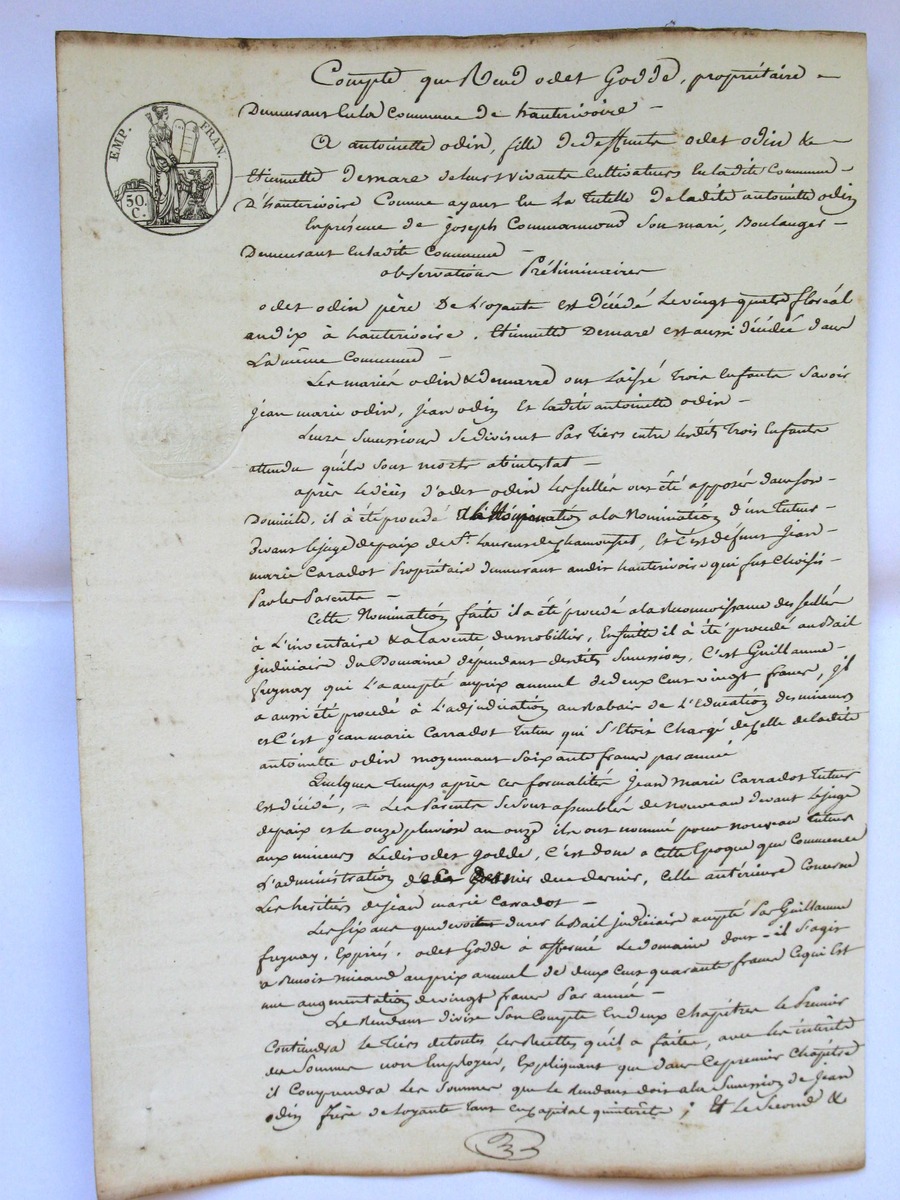 EMP. FRAN.
50.
C.
Compte que Rend odet Godde, propriétaire
Demeurant en la Commune de hauterivoire
A antoinette odin, fille de deffunts odet odin &
Etiennette demare de leurs vivants Cultivateurs en ladite Commune
D'hauterivoire Comme ayant eu La Tutelle de ladite antoinette odin
En présence de joseph Commarmond Son mari, Boulanger
Demeurant en ladite Commune
observations Préliminaires
odet odin père De L'oyante est décédé Le vingt quatre floréal
an dix à hauterivoire, Etiennette Demare est aussi décédée dans
La même Commune
Les mariés odin & Demarre ont Laissé trois Enfants Savoir
jean marie odin, jean odin Et ladite antoinette odin
Leurs Successions Se divisent Par Tiers entre lesdits Trois Enfants
attendu qu'ils Sont morts abintestat
après le décès d'odet odin les scellés ont été apposés dans son
Domicile, il à été procédé a la Nomination d'un tuteur
Devant le juge de paix de St. Laurent de Chamousset, Et C'est défunt Jean
marie Caradot Propriétaire demeurant audit hauterivoire qui fut Choisis
Par les Parents
Cette Nomination faite il a été procédé a la Reconnoissance des scellés
à L'inventaire & a la vente du mobillier, Ensuite il à été procédé au Bail
judiciaire du Domaine dépendant desdites Successions, C'est Guillaume
qui L'a accepté au prix annuel de deux cent vingt francs, il
a aussi été procédé à L'adjudication au Rabais de L'Education des mineurs
et C'est jean marie Carradot Tuteur qui S'Etoit Chargé de Celle de ladite
antoinette odin moyennant Soixante francs par année
Quelques Temps après ces formalités Jean Marie Carradot Tuteur
est décédé, = Les Parents Se sont assemblés de nouveau devant le juge
de paix et le onze pluviose an onze ils ont nommé pour nouveau tuteur
aux mineurs Ledit odet Godde, C'est donc a cette Epoque que Commence
L'administration de ce dernier, Celle antérieure Concerne
Les héritiers de jean marie Carradot
Les Six ans que devoit durer le Bail judiciaire accepté Par Guillaume
Expirés, odet Godde à affermé Le domaine dont il S'agit
a Benoit au prix annuel de deux cent quarante francs Ce qui Est
une augmentation de vingt francs Par année
Le Rendant divise Son Compte En deux Chapitres le Premier
Contiendra le Tiers de toutes les Recettes qu'il a faites, avec les intérêts
des Sommes non Employées, Expliquant que dans Ce premier Chapitre
il Comprendra Les Sommes que le Rendant doit a la Succession de Jean
odin frère de Loyante tant en Capital qu'intérêts ; Et Le Second &